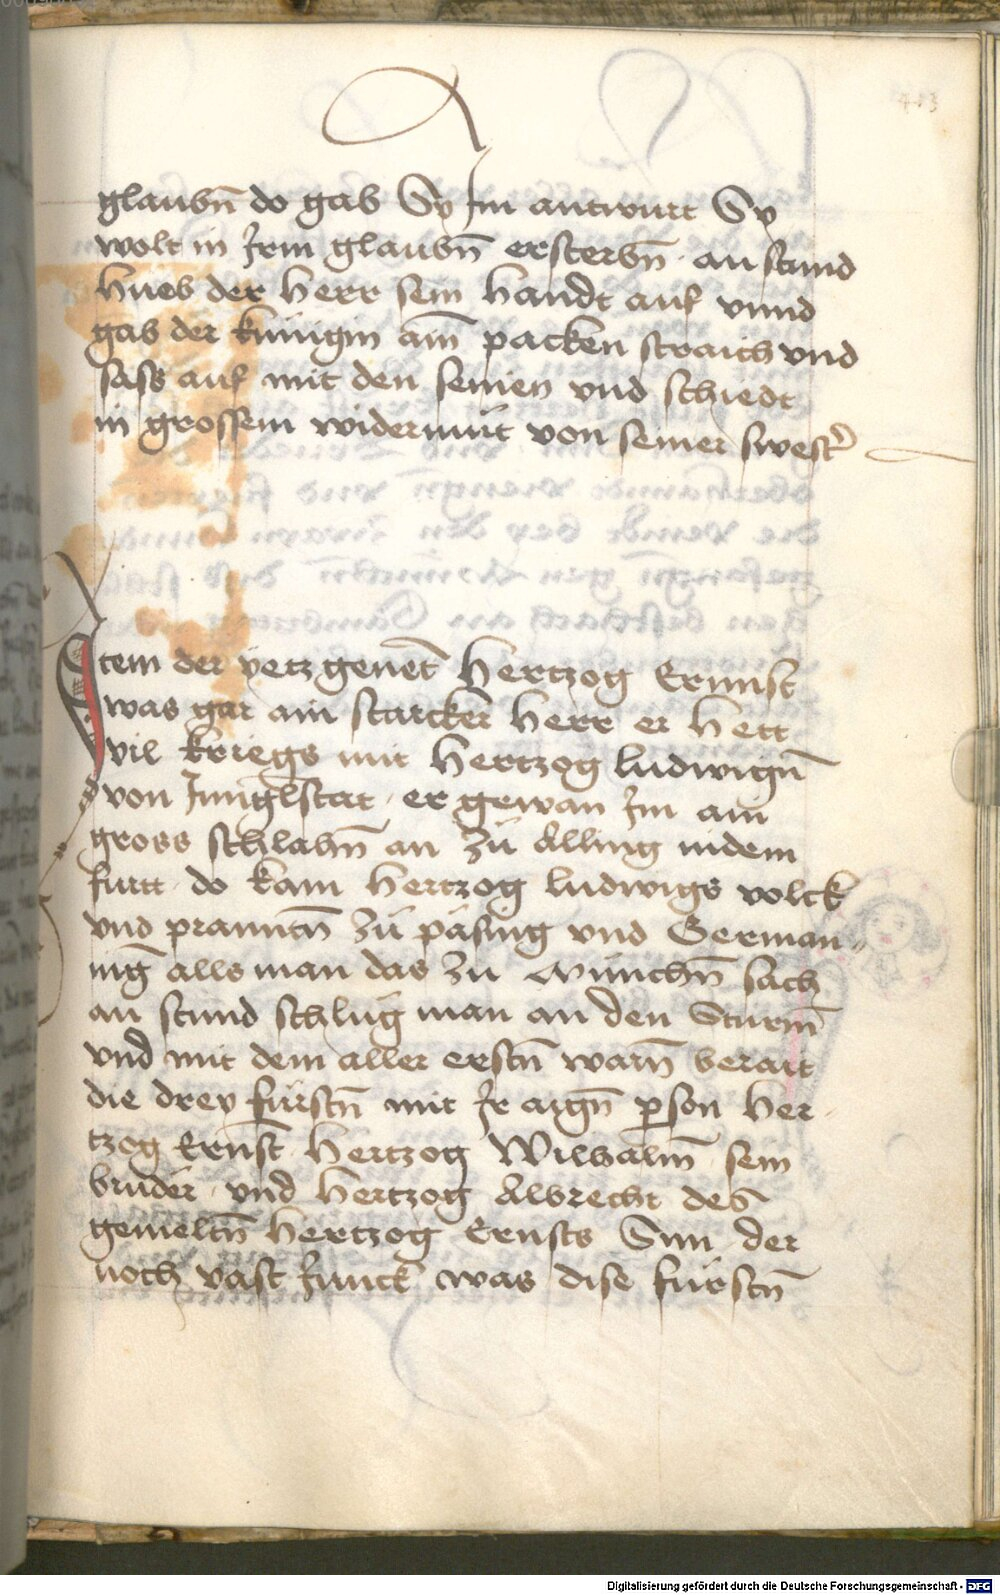 413
glaubn̄ do gab Sy Im antwurt Sy
wolt in Irm glaubn̄ ersterbn̄ an stund
hueb der Herr sein handt auf vnnd
gab der künigin ain̄ packen straich vnd
sass auf mit den seinen vnd schiedt
in grossem widermüt von seiner swest̄
Item der yetz genet̄ Hertzog Ernnst
was gar ain starcker Herr er hett
vil kriegs mit Hertzog ludwign̄
von Inngl̄stat er gewan Im ain
gross schlahn̄ an zü Alling indem
furtt do kam Hertzog ludwigs volck
vnd pranntn̄ zü päsing vnd German„
ing alls man das zu München̄ sach
an stund schlüg man an den Sturm̄
vnd mit dem aller erstn̄ warn̄ berait
die drey fürstn̄ mit Ir aign̄ p̱son Her
tzog Ernst Hertzog Wilhalm̄ sein
brüder vnd Hertzog Albrecht des
gemeltn̄ Hertzog Ernsts Sun der
noch vast Junck was dise fürstn̄
Digitalisierung gefördert durch die Deutsche Forschungsgemeinschaft - DFG